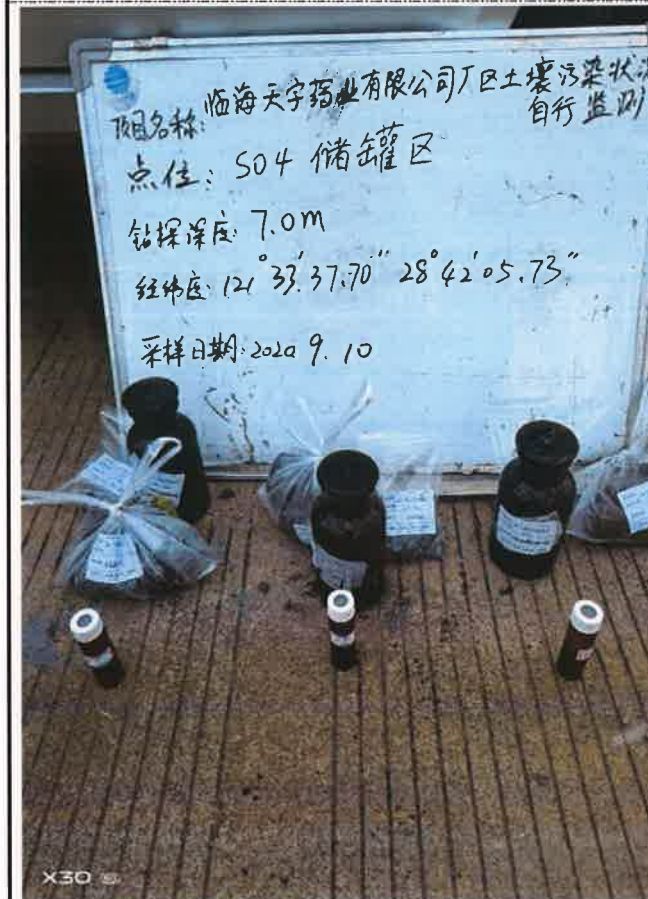 项目名称: 临海天宇药业有限公司厂区土壤污染状况
自行监测
点位: S04 储罐区
钻探深度: 7.0m
经纬度: 121°33′37.70″ 28°42′05.73″
采样日期: 2020 9.10
X30